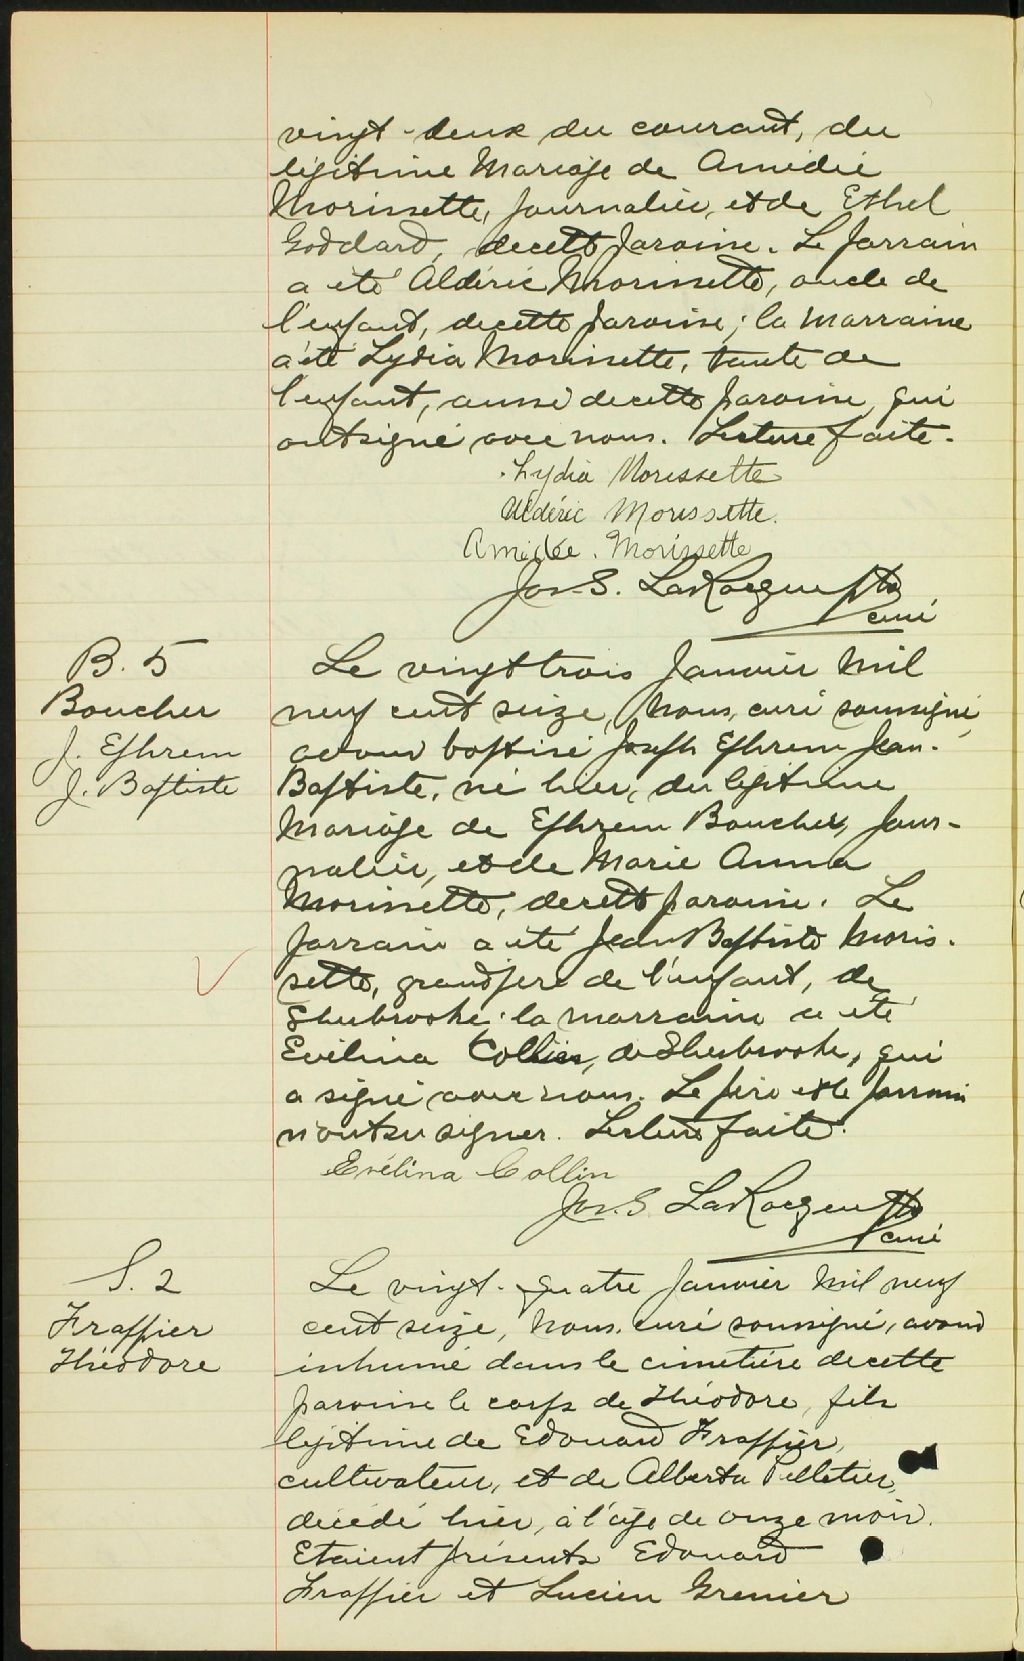 vingt-deux du courant, du
légitime Mariage de Amédée
Morissette, journalier, et de Ethel
Goddard, de cette paroisse. Le parrain
a été Aldéric Morissette, oncle de
l'enfant, de cette paroisse; la marraine
a été Lydia Morissette, tante de
l'enfant, aussi de cette paroisse, qui
ont signé avec nous. Lecture faite.
Lydia Morissette
Aldéric Morissette.
Amédée. Morissette
Jos. S. LaRocque Ptre
curé
B. 5
Boucher
J. Ephrem
J. Baptiste
Le vingt trois Janvier Mil
neuf cent seize, Nous, curé soussigné,
avons baptisé Joseph Ephrem Jean-
Baptiste, né hier, du légitime
Mariage de Ephrem Boucher, jour-
nalier, et de Marie Anna
Morissette, de cette paroisse. Le
parrain a été Jean Baptiste Moris-
sette, grandpère de l'enfant, de
Sherbrooke; la marraine a été
Evélina Collin, de Sherbrooke, qui
a signé avec nous. Le père et le parrain
n'ont su signer. Lecture faite.
Evélina Collin
Jos. S. LaRocque Ptre
curé
S. 2
Frappier
Théodore
Le vingt-quatre Janvier Mil neuf
cent seize, Nous, curé soussigné, avons
inhumé dans le cimetière de cette
paroisse le corps de Théodore, fils
légitime de Edouard Frappier,
cultivateur, et de Alberta Pelletier,
décédé hier, à l'âge de onze mois.
Etaient présents Edouard
Frappier et Lucien Grenier